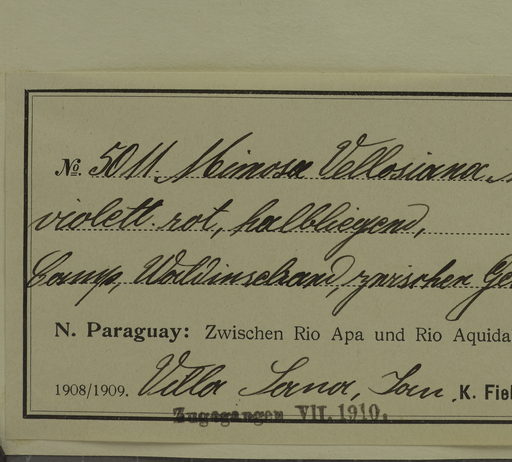 No. 5011. Mimosa Vellosiana
violett. rot, halbliegend,
Camp, Waldinselrand, zwischen Ge
N. Paraguay: Zwischen Rio Apa und Rio Aquida
1908/1909. Villa Sana, Jan. K. Fie
Zugegangen VII. 1910.